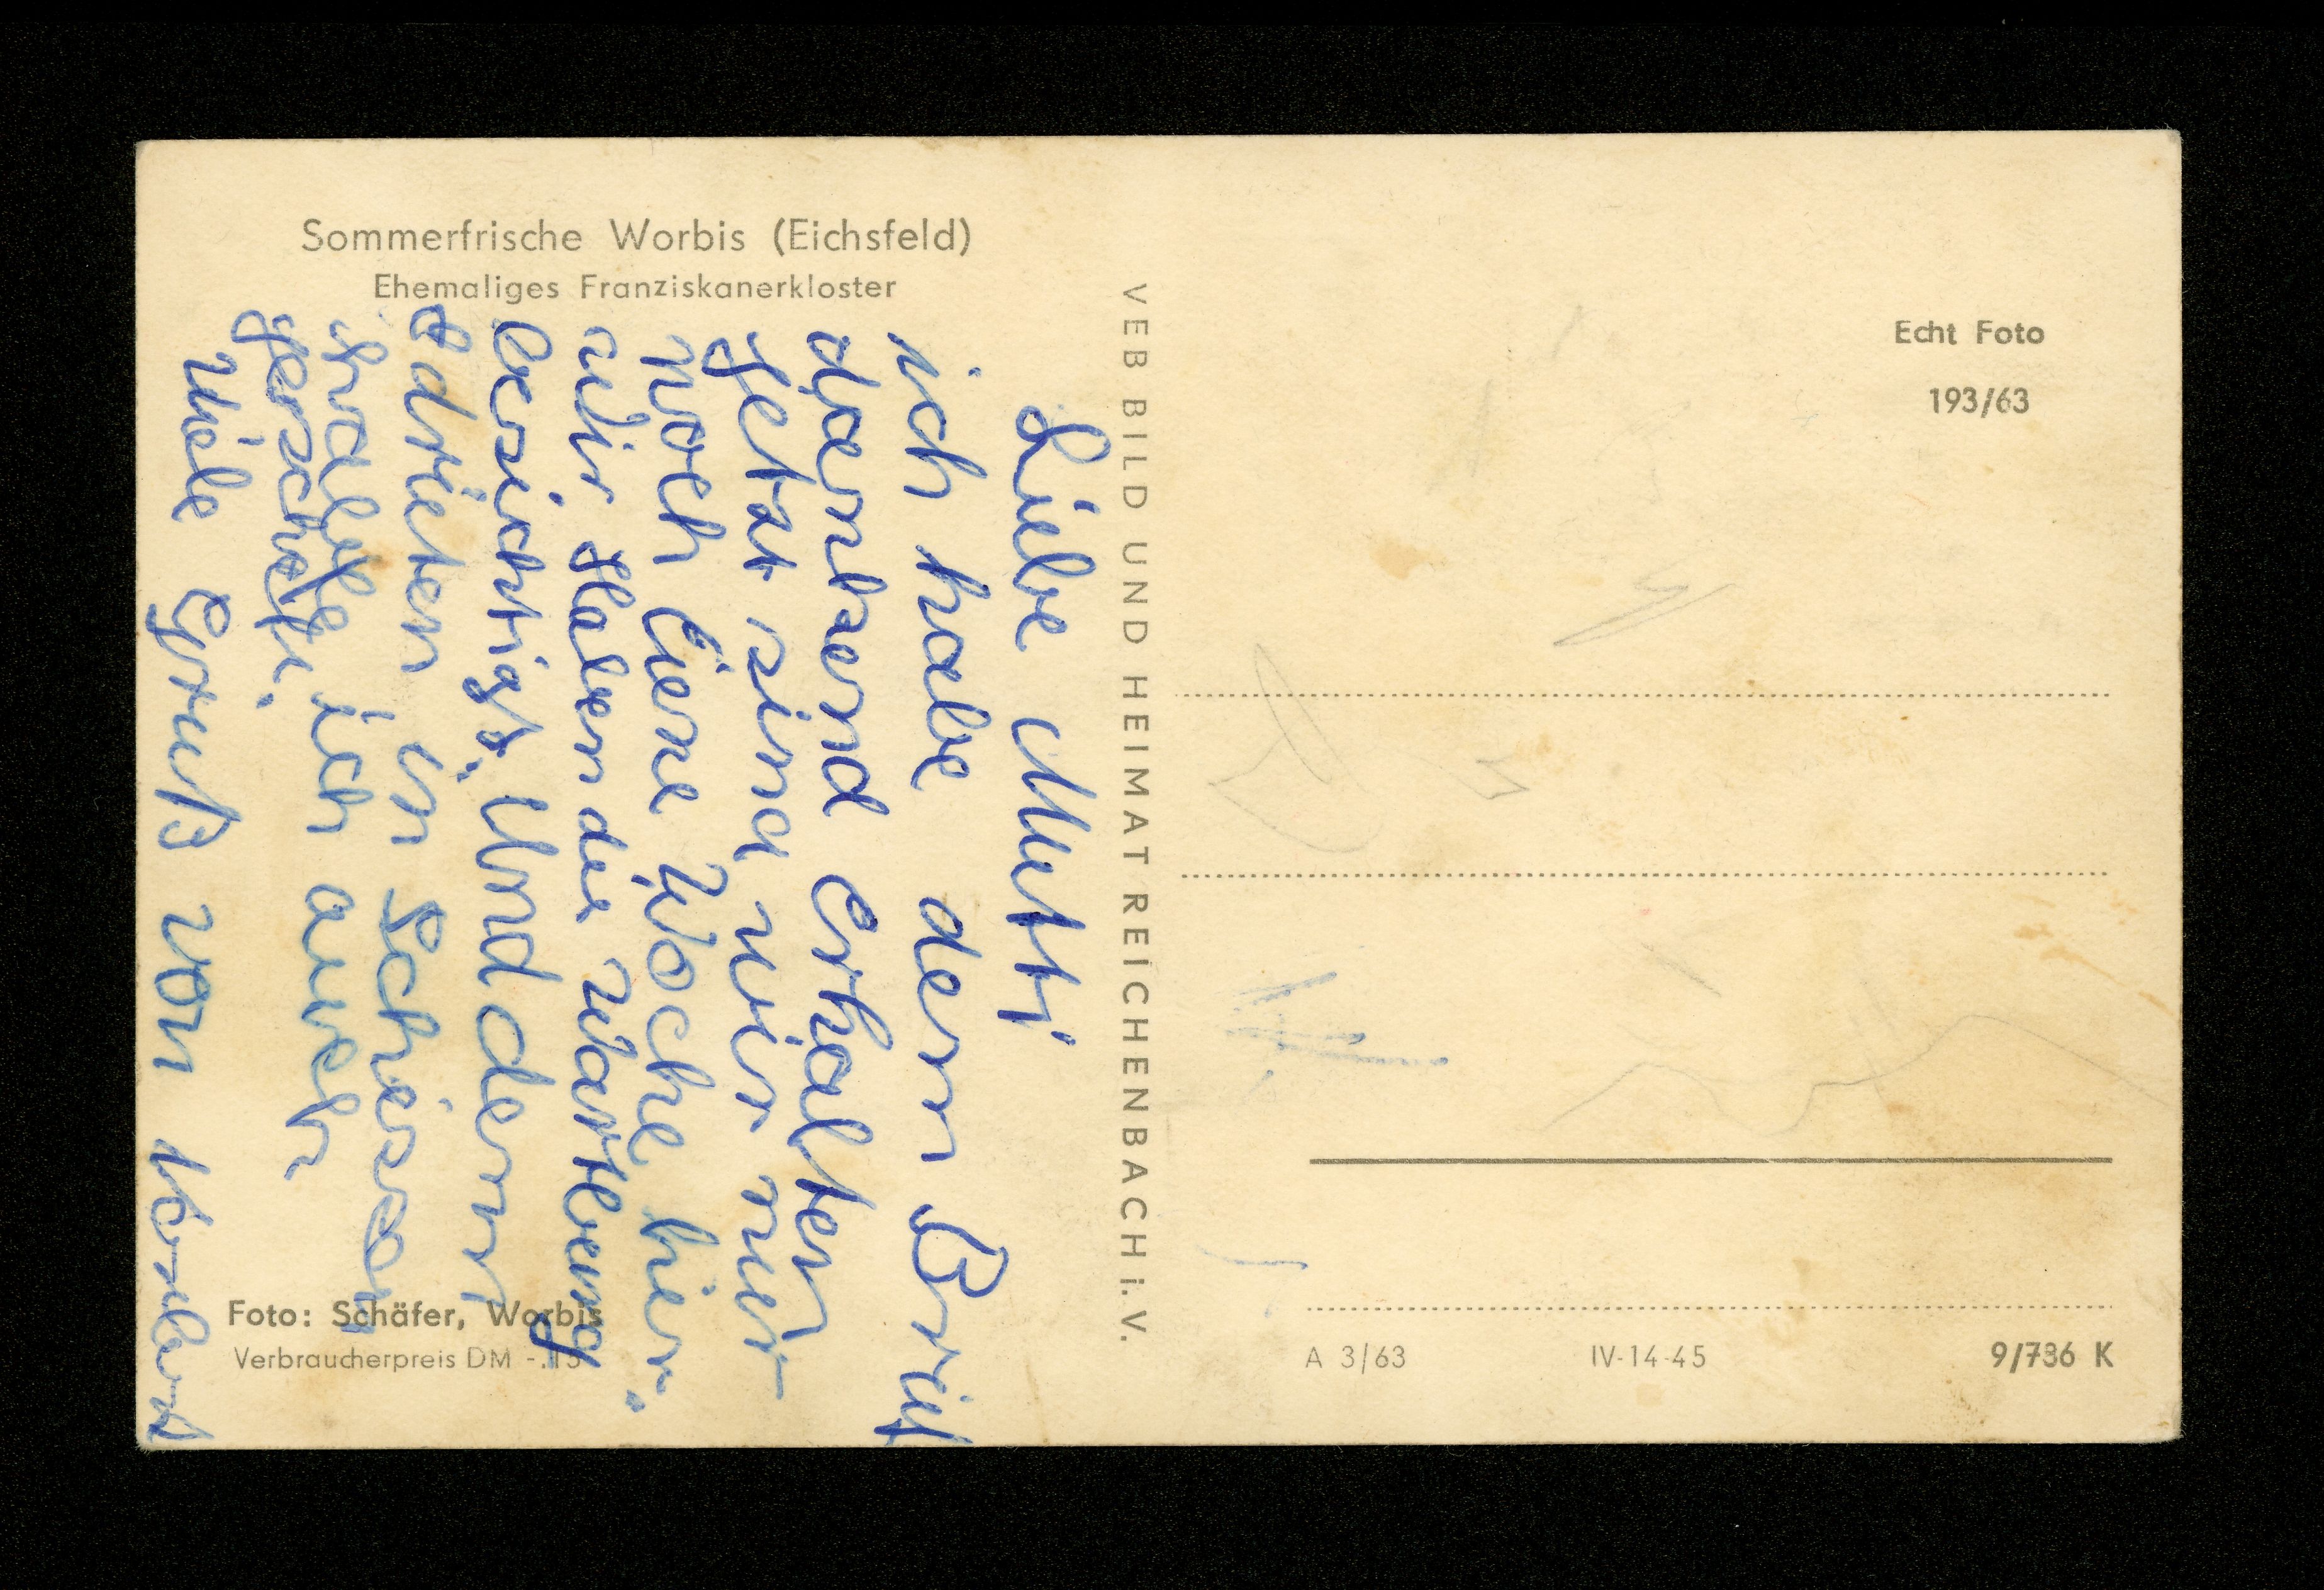 Sommerfrische Worbis (Eichsfeld)
Ehemaliges Franziskanerkloster
Liebe Mutti
ich habe den Brief
dankend Erhalten
jetzt sind wir nur
noch Eiene Woche hier.
wir Haben die Wartburg
besichtigt. Und denn
3 dritten in Schissen
habe ich auch
geschaft.
Viele Gruß von Norbert
Foto: Schäfer, Worbis
Verbraucherpreis DM -.15
VEB BILD UND HEIMAT REICHENBACH i. V.
Echt Foto
193/63
A 3/63
IV-14-45
9/736 K